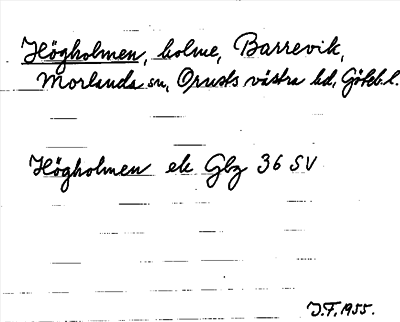 Högholmen, holme, Barrevik,
Morlanda sn, Orusts västra hd, Göteb. l.
Högholmen ek Gbg 36 SV
J.F. 1955.